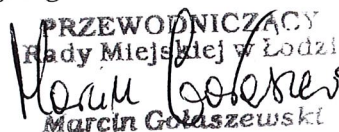 PRZEWODNICZĄCY
Rady Miejskiej w Łodzi
Marcin Gołaszewski
Marcin Gołaszewski